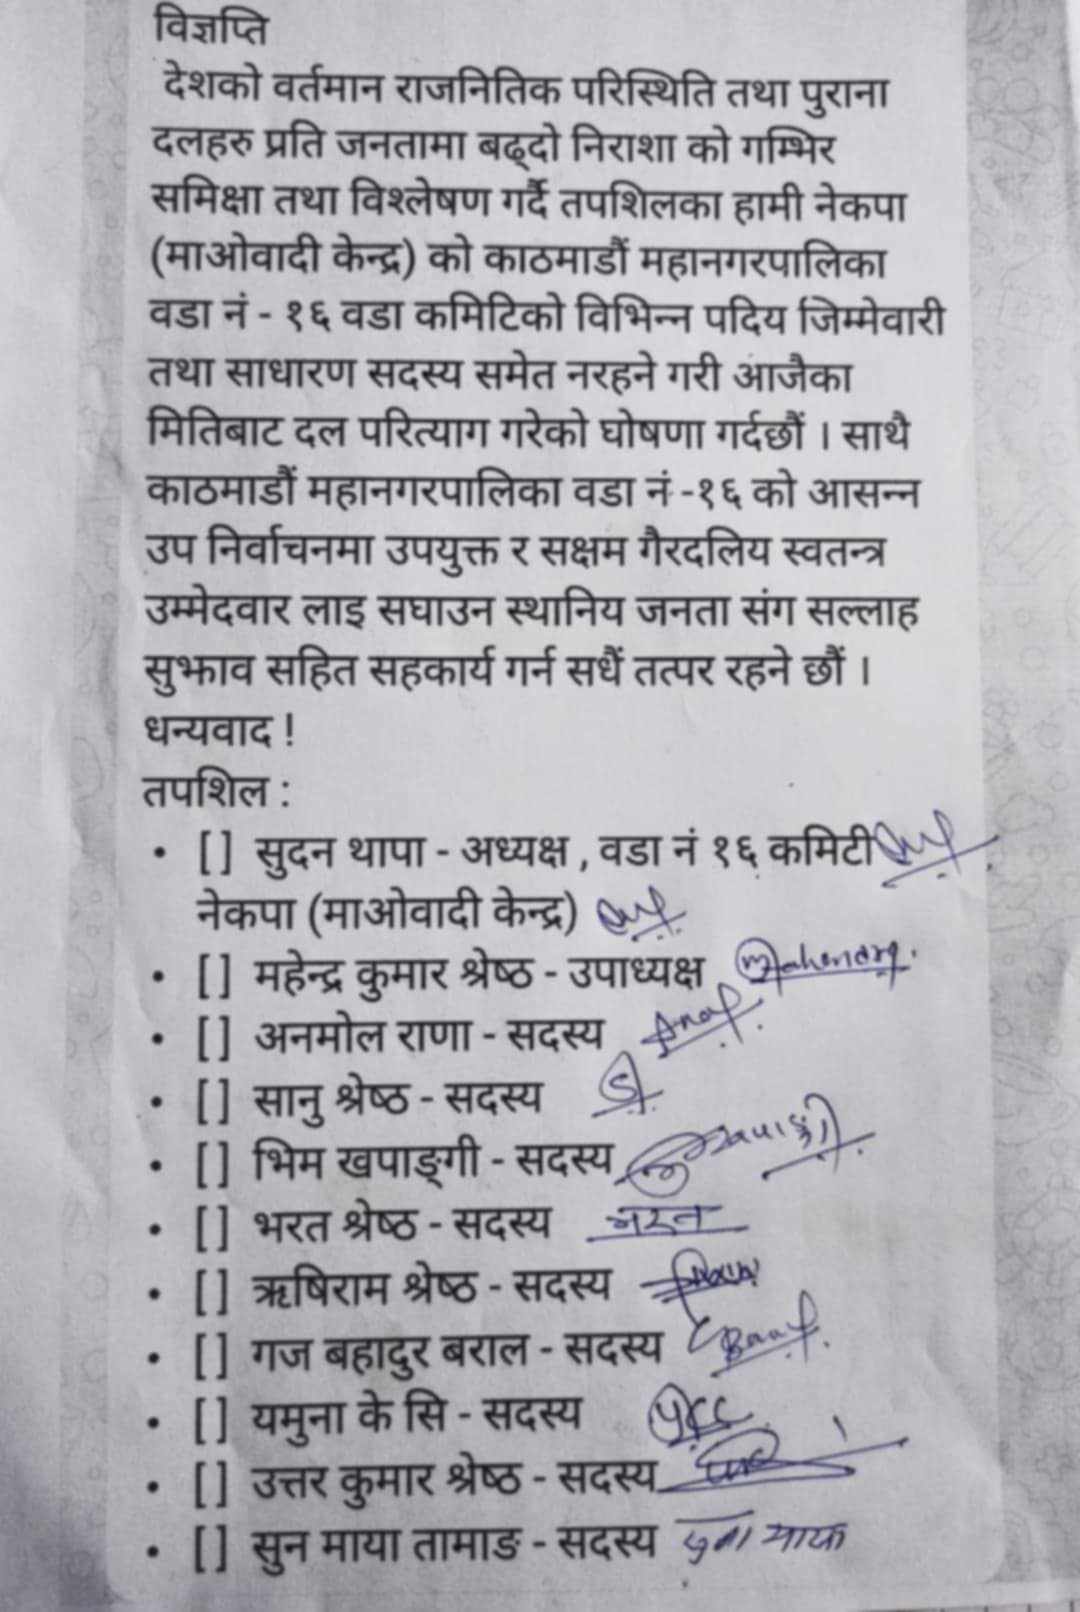 विज्ञप्ति
देशको वर्तमान राजनितिक परिस्थिति तथा पुराना
दलहरु प्रति जनतामा बढ्दो निराशा को गम्भिर
समिक्षा तथा विश्लेषण गर्दै तपशिलका हामी नेकपा
(माओवादी केन्द्र) को काठमाडौं महानगरपालिका
वडा नं - १६ वडा कमिटिको विभिन्न पदिय जिम्मेवारी
तथा साधारण सदस्य समेत नरहने गरी आजैका
मितिबाट दल परित्याग गरेको घोषणा गर्दछौं । साथै
काठमाडौं महानगरपालिका वडा नं -१६ को आसन्न
उप निर्वाचनमा उपयुक्त र सक्षम गैरदलिय स्वतन्त्र
उम्मेदवार लाइ सघाउन स्थानिय जनता संग सल्लाह
सुझाव सहित सहकार्य गर्न सधैं तत्पर रहने छौं ।
धन्यवाद !
तपशिल :
• [ ] सुदन थापा - अध्यक्ष , वडा नं १६ कमिटी
नेकपा (माओवादी केन्द्र)
• [ ] महेन्द्र कुमार श्रेष्ठ - उपाध्यक्ष Mahendra
• [ ] अनमोल राणा - सदस्य
• [ ] सानु श्रेष्ठ - सदस्य
• [ ] भिम खपाङ्गी - सदस्य
• [ ] भरत श्रेष्ठ - सदस्य भरत
• [ ] ऋषिराम श्रेष्ठ - सदस्य
• [ ] गज बहादुर बराल - सदस्य
• [ ] यमुना के सि - सदस्य
• [ ] उत्तर कुमार श्रेष्ठ - सदस्य
• [ ] सुन माया तामाङ - सदस्य